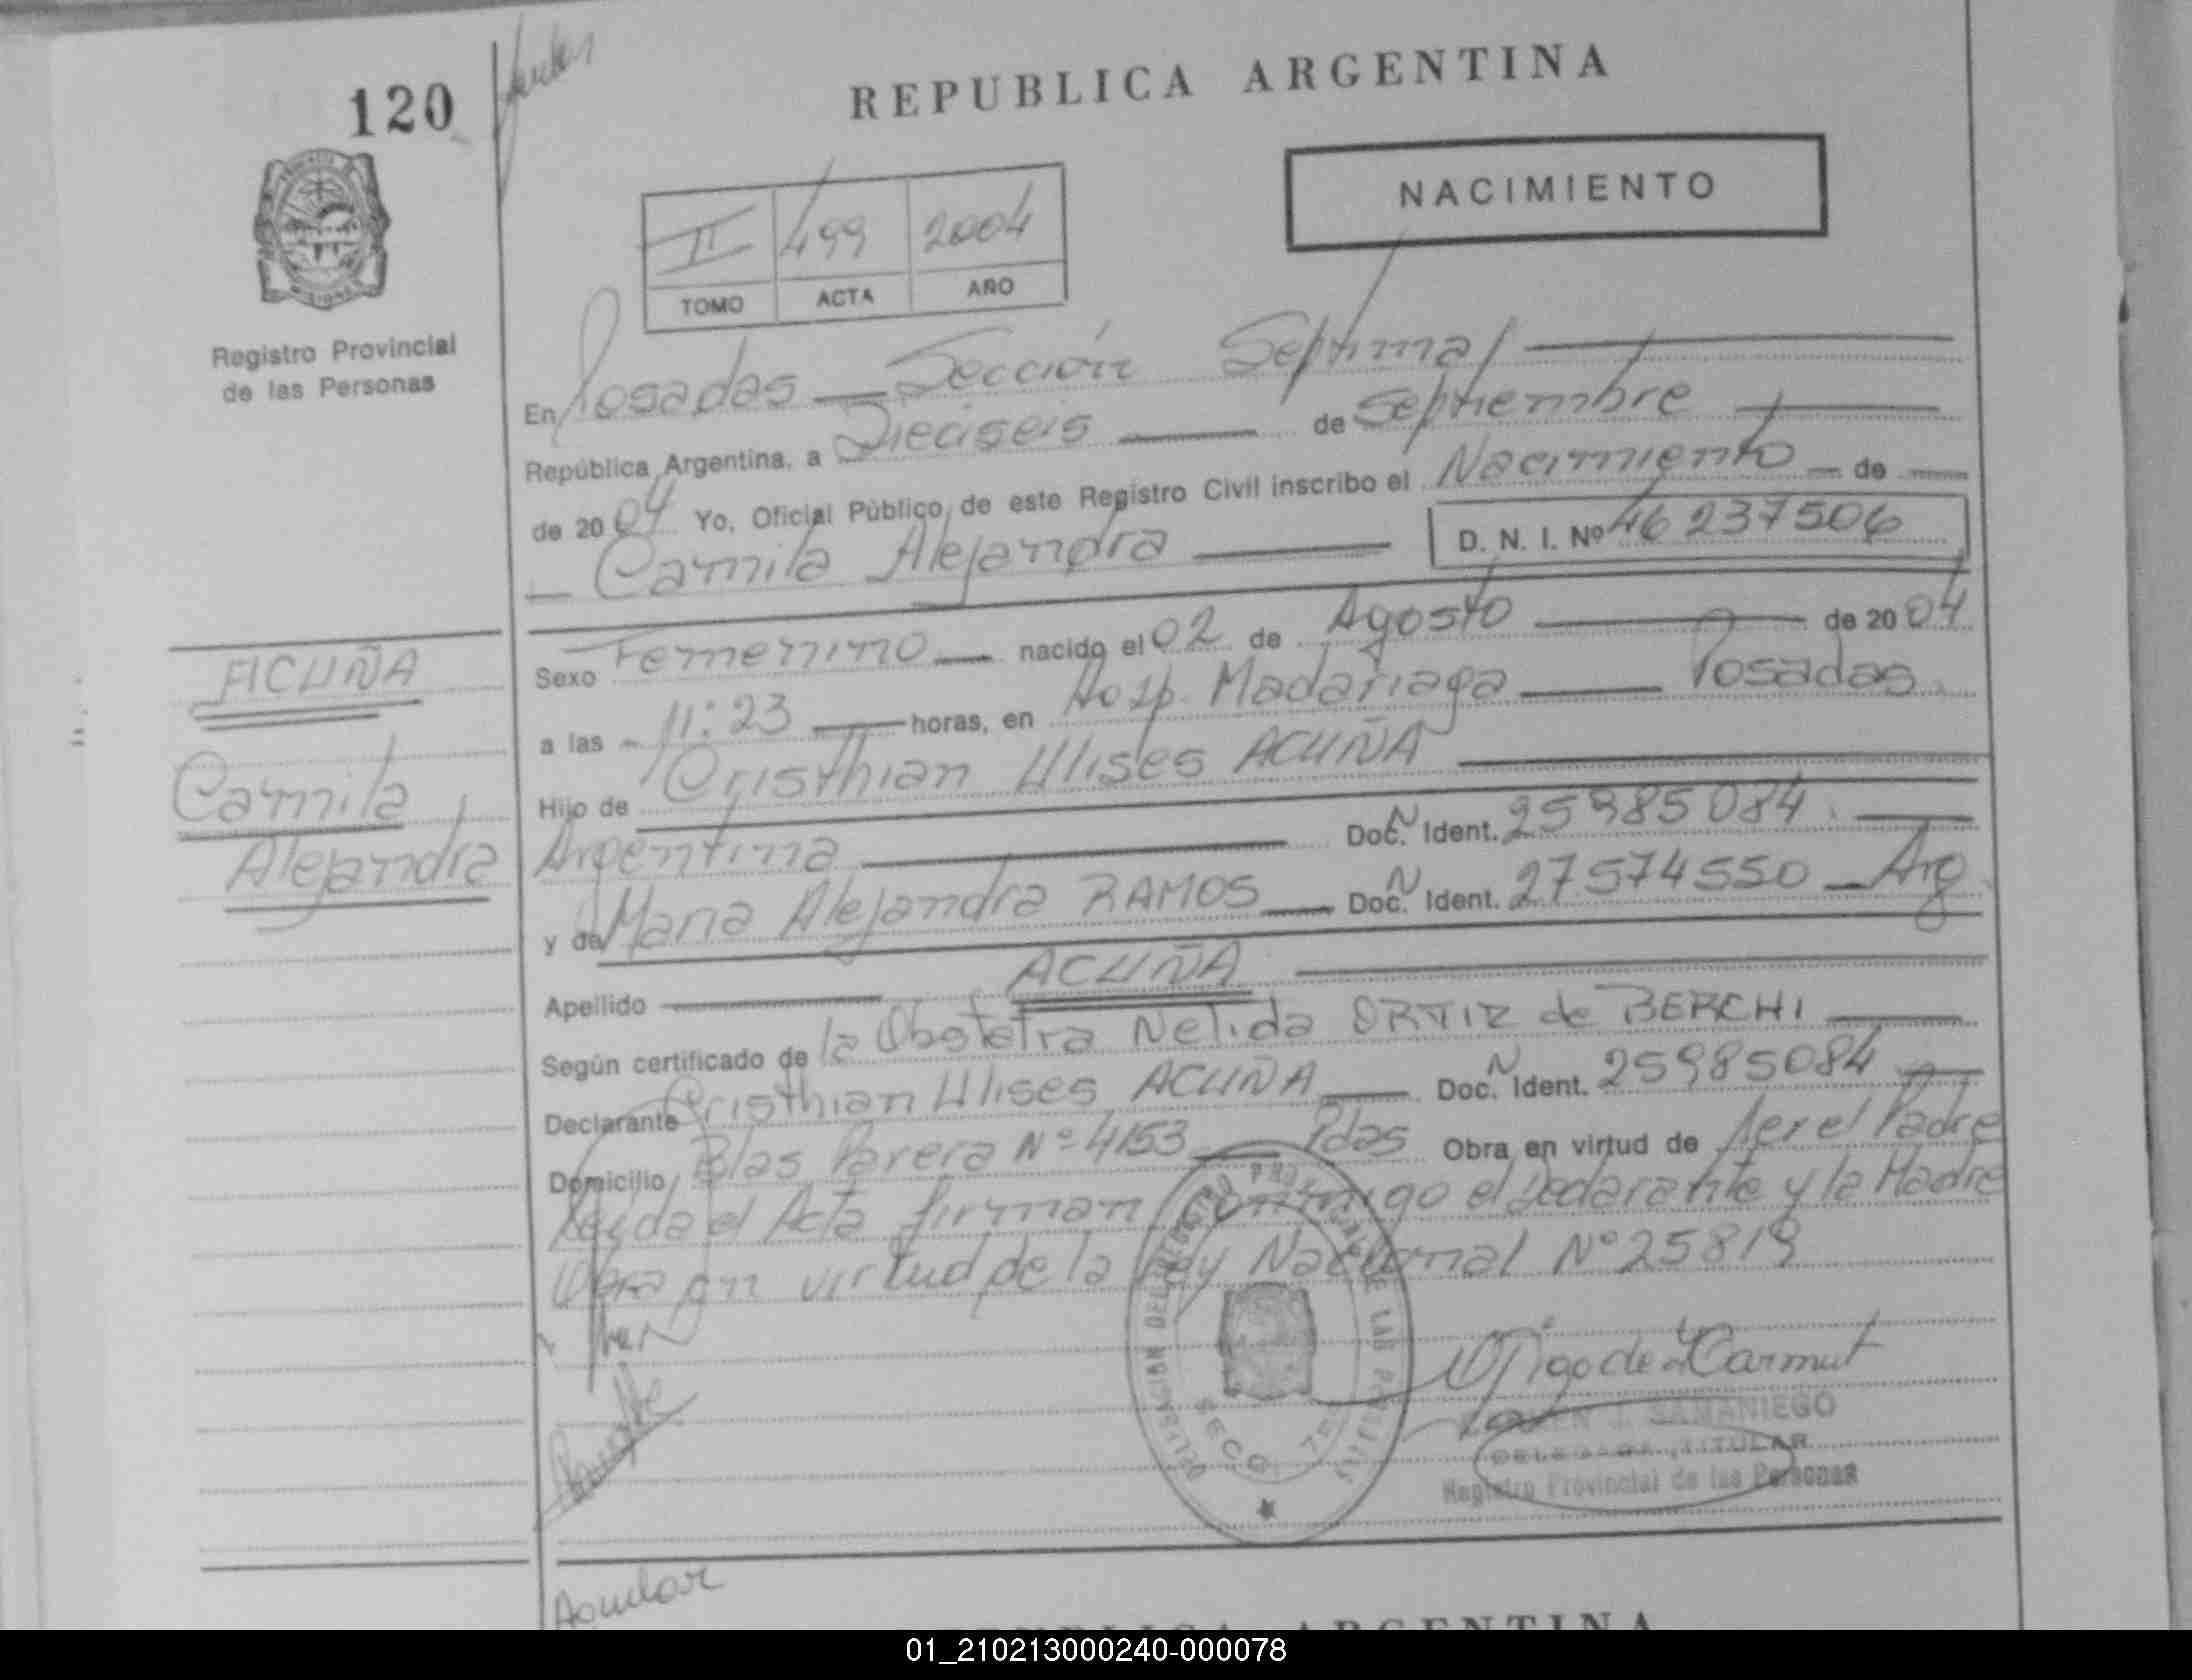 120
REPUBLICA ARGENTINA
NACIMIENTO
II 499 2004
TOMO ACTA AÑO
Registro Provincial
de las Personas
En Posadas — Sección Septima
República Argentina, a Dieciseis de Septiembre
de 2004 Yo, Oficial Público de este Registro Civil inscribo el Nacimiento de
Camila Alejandra D. N. I. Nº 46 237506
Sexo Femenino nacido el 02 de Agosto de 2004
a las 11:23 horas, en Hosp. Madariaga — Posadas.
Hijo de Cristhian Ulises ACUÑA
Argentina Doc. N Ident. 25985084.
y de Maria Alejandra RAMOS Doc. N Ident. 27574550 — Arg
Apellido ACUÑA
Según certificado de la Obstetra Nelida ORTIZ de BERCHI
Declarante Cristhian Ulises ACUÑA Doc. N Ident. 25985084
Domicilio Blas Parera Nº 4153 — Pdas Obra en virtud de ser el Padre
Leida el Acta firman conmigo el Declarante y la Madre
Obra en virtud de la Ley Nacional Nº 25819
ACUÑA
Camila
Alejandra
SAMANIEGO
DELEGADA TITULAR
Registro Provincial de las Personas
Aguilar
REPUBLICA ARGENTINA
01_210213000240-000078